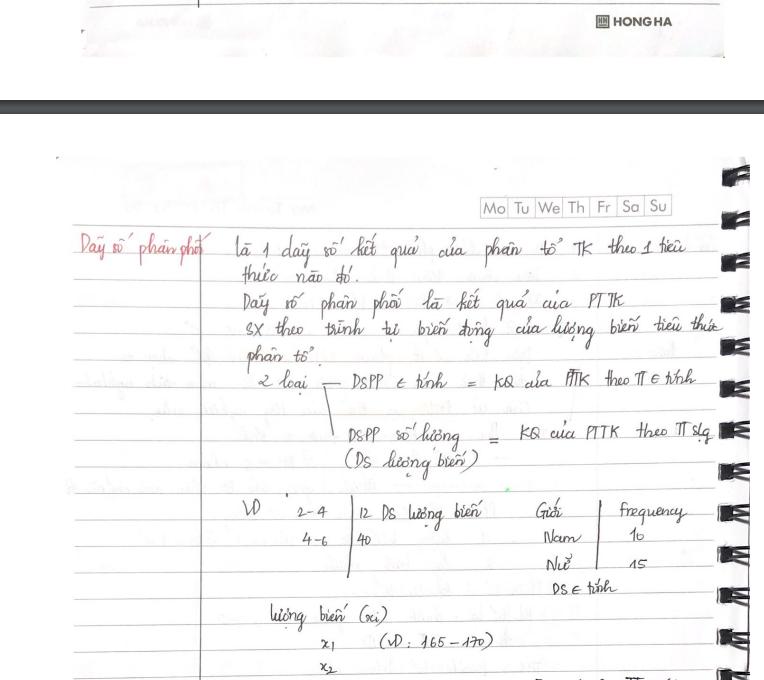 HONG HA
Mo Tu We Th Fr Sa Su
Dãy số phân phối là 1 dãy số kết quả của phân tổ TK theo 1 tiêu
thức nào đó.
Dãy số phân phối là kết quả của PTTK
SX theo trình tự biến động của lượng biến tiêu thức
phân tổ.
2 loại — DSPP ∈ tính = KQ của PTTK theo TT ∈ tính
DSPP số lượng = KQ của PTTK theo TT slg
(DS lượng biến)
VD 2-4 12 DS lượng biến Giới frequency
4-6 40 Nam 10
Nữ 15
DS ∈ tính
lượng biến (xi)
x1 (VD: 165-170)
x2